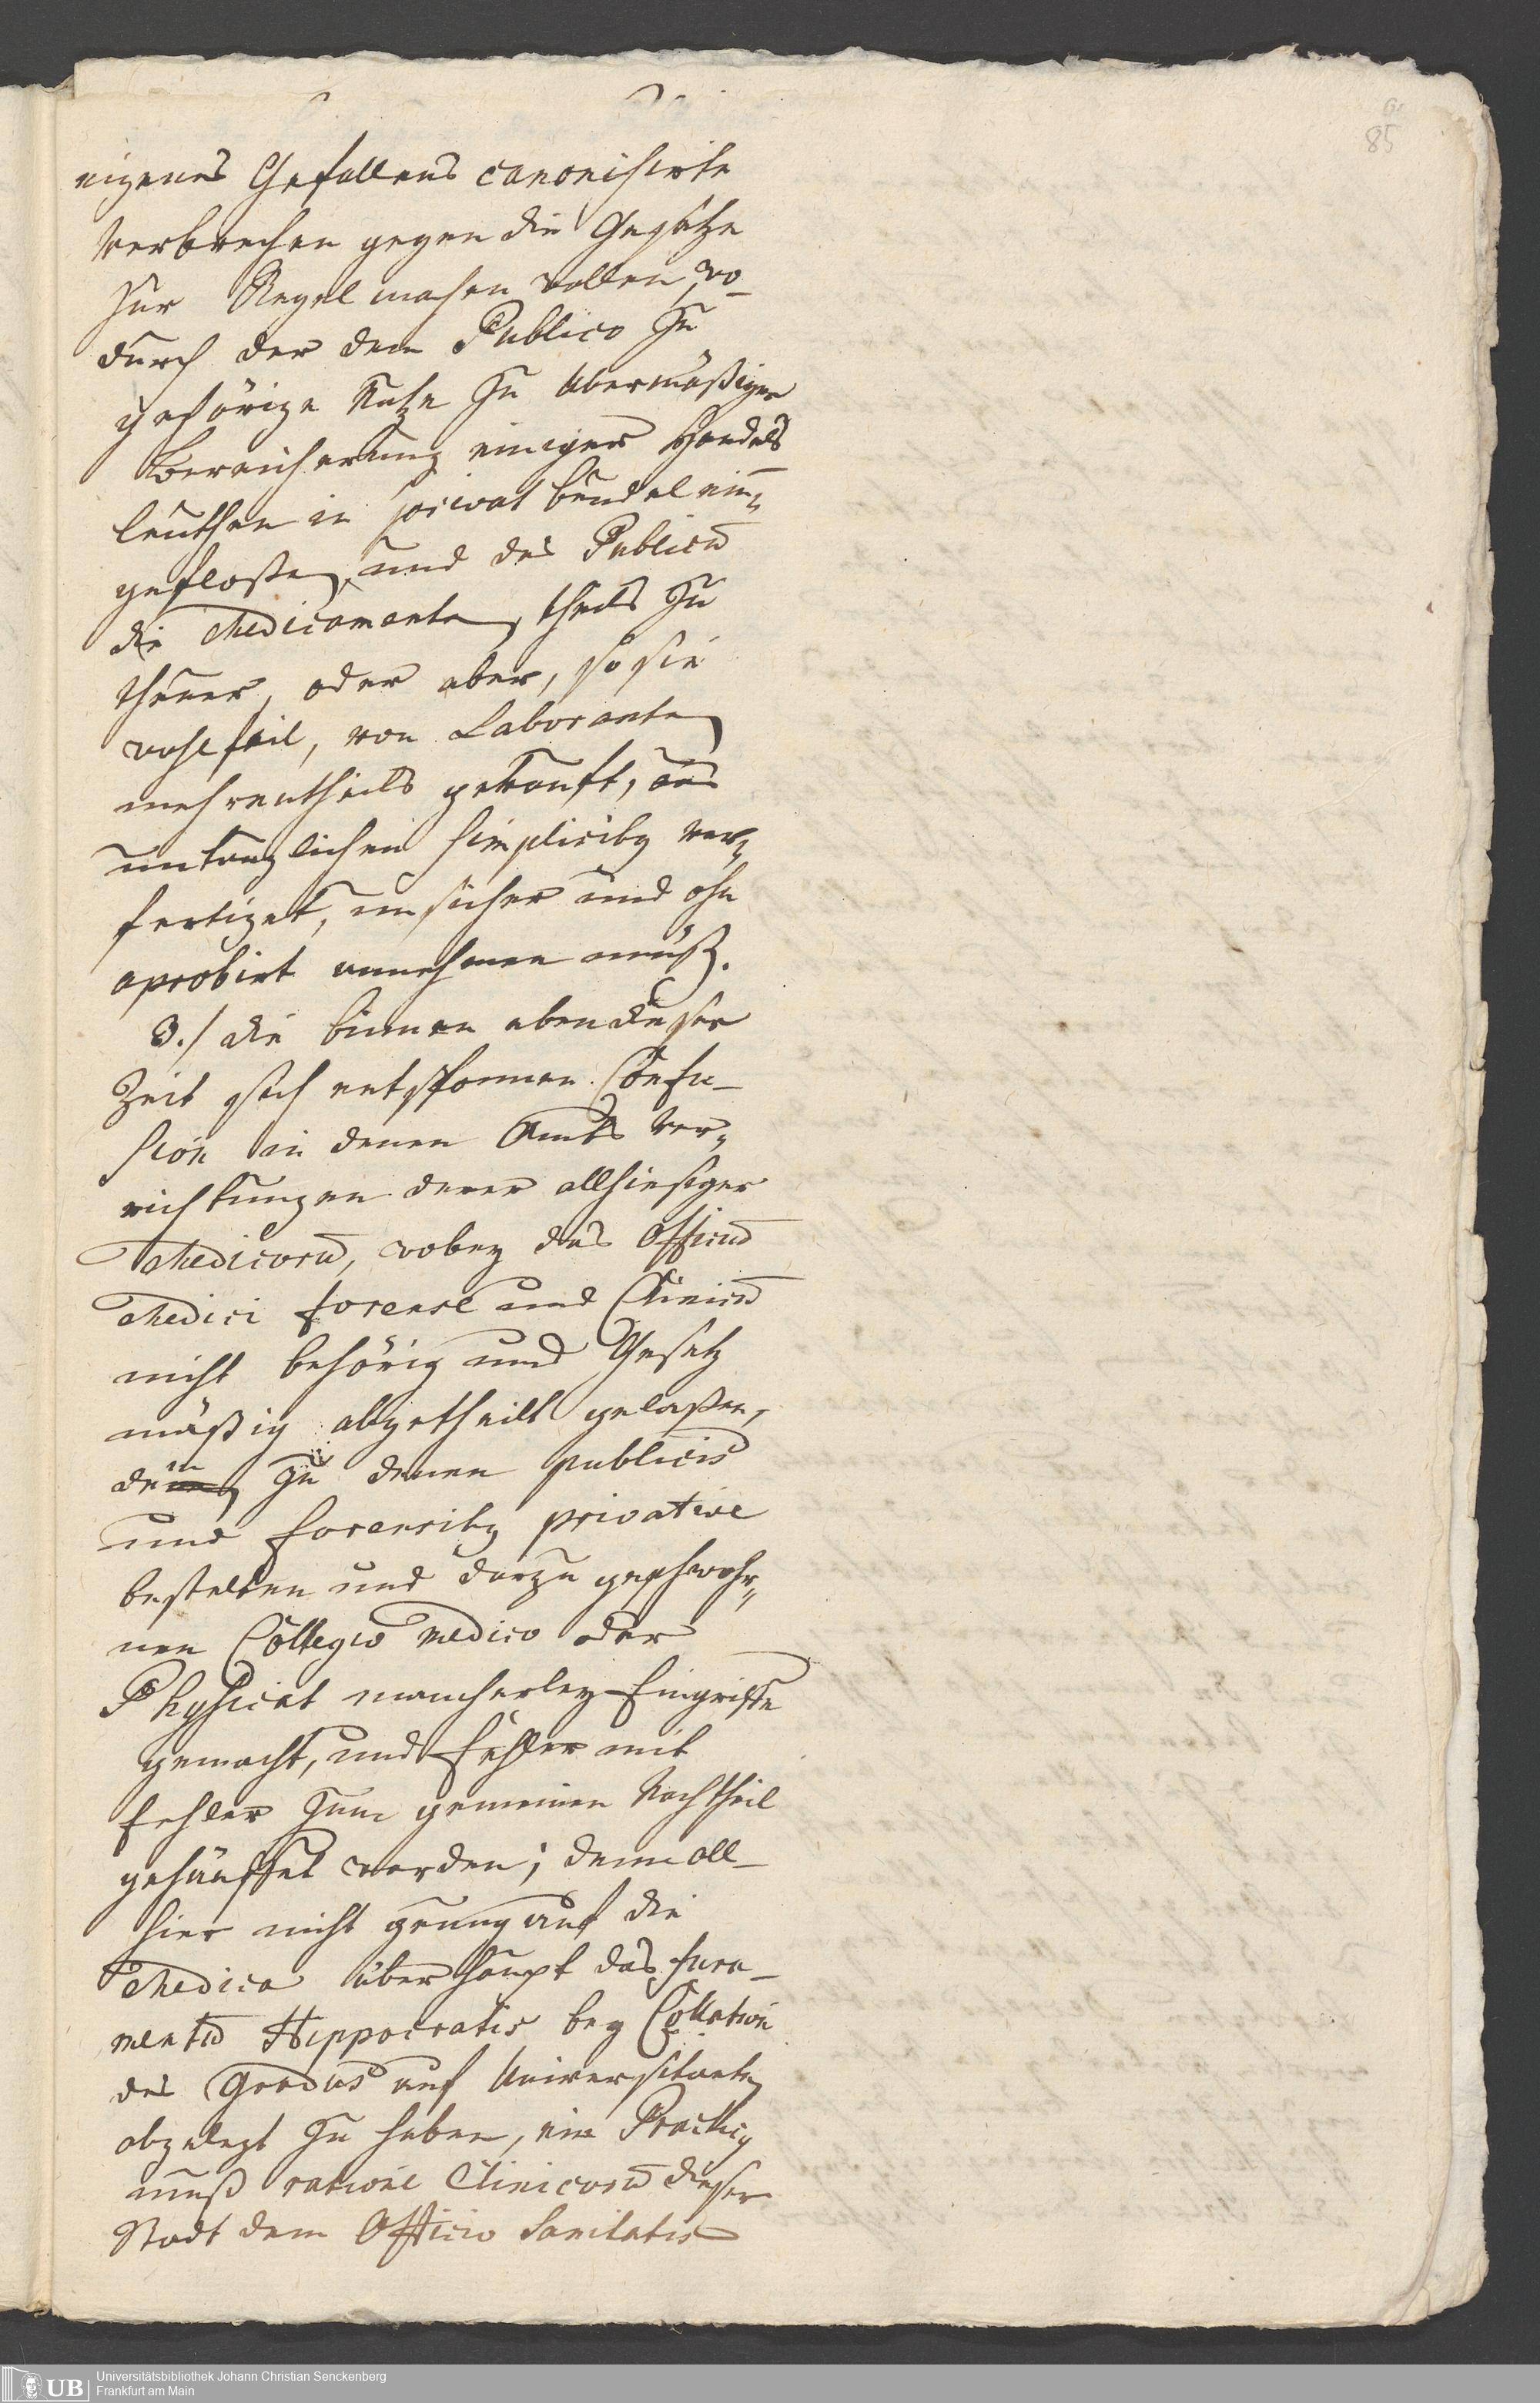 85
eigenes Gefallens canonisirte
Verbrechen gegen die Gesetze
zur Regel machen wollen, wo-
durch der dem Publico zu
gehörige Nutze zu übermäßiger
Bereicherung einiger Handels
leuthen in privat beudel ein„
gefloßen, und das Publicū
die Medicamenta, theils zu
theuer, oder aber, so sie
wohlfeil, von Laboranten
mehrentheils gekauft, aus
untauglichen Simplicibg ver„
fertiget, unsicher und ohn
aprobirt annehmen muß.
3./ die binnen eben dieser
Zeit sich entsponnen Confu-
sion in denen Amts Ver„
richtungen derer allhiesiger
Medicorū, wobey das Officiū
Medici forense und Clinicū
nicht behörig und Gesetz
mäßig abgetheilt gelaßen,
dein zu denen publicis
und forensibg privative
bestelten und darzu geschwohr„
nen Collegio medico oder
Physicat mancherley Eingriffe
gemacht, und Fehler mit
Fehler zum gemeinen Nachtheil
gehäuffet worden; denn all-
hier nicht genung auf die
Medica überhaupt das Jura-
mentū Hippocratis bey Collation
des Gradus auf Universitaeten
abgelegt zu haben, ein Practicg
muß ratione Clinicorū dieser
Stadt dem Officio Sanitatis
UB Universitätsbibliothek Johann Christian Senckenberg
Frankfurt am Main